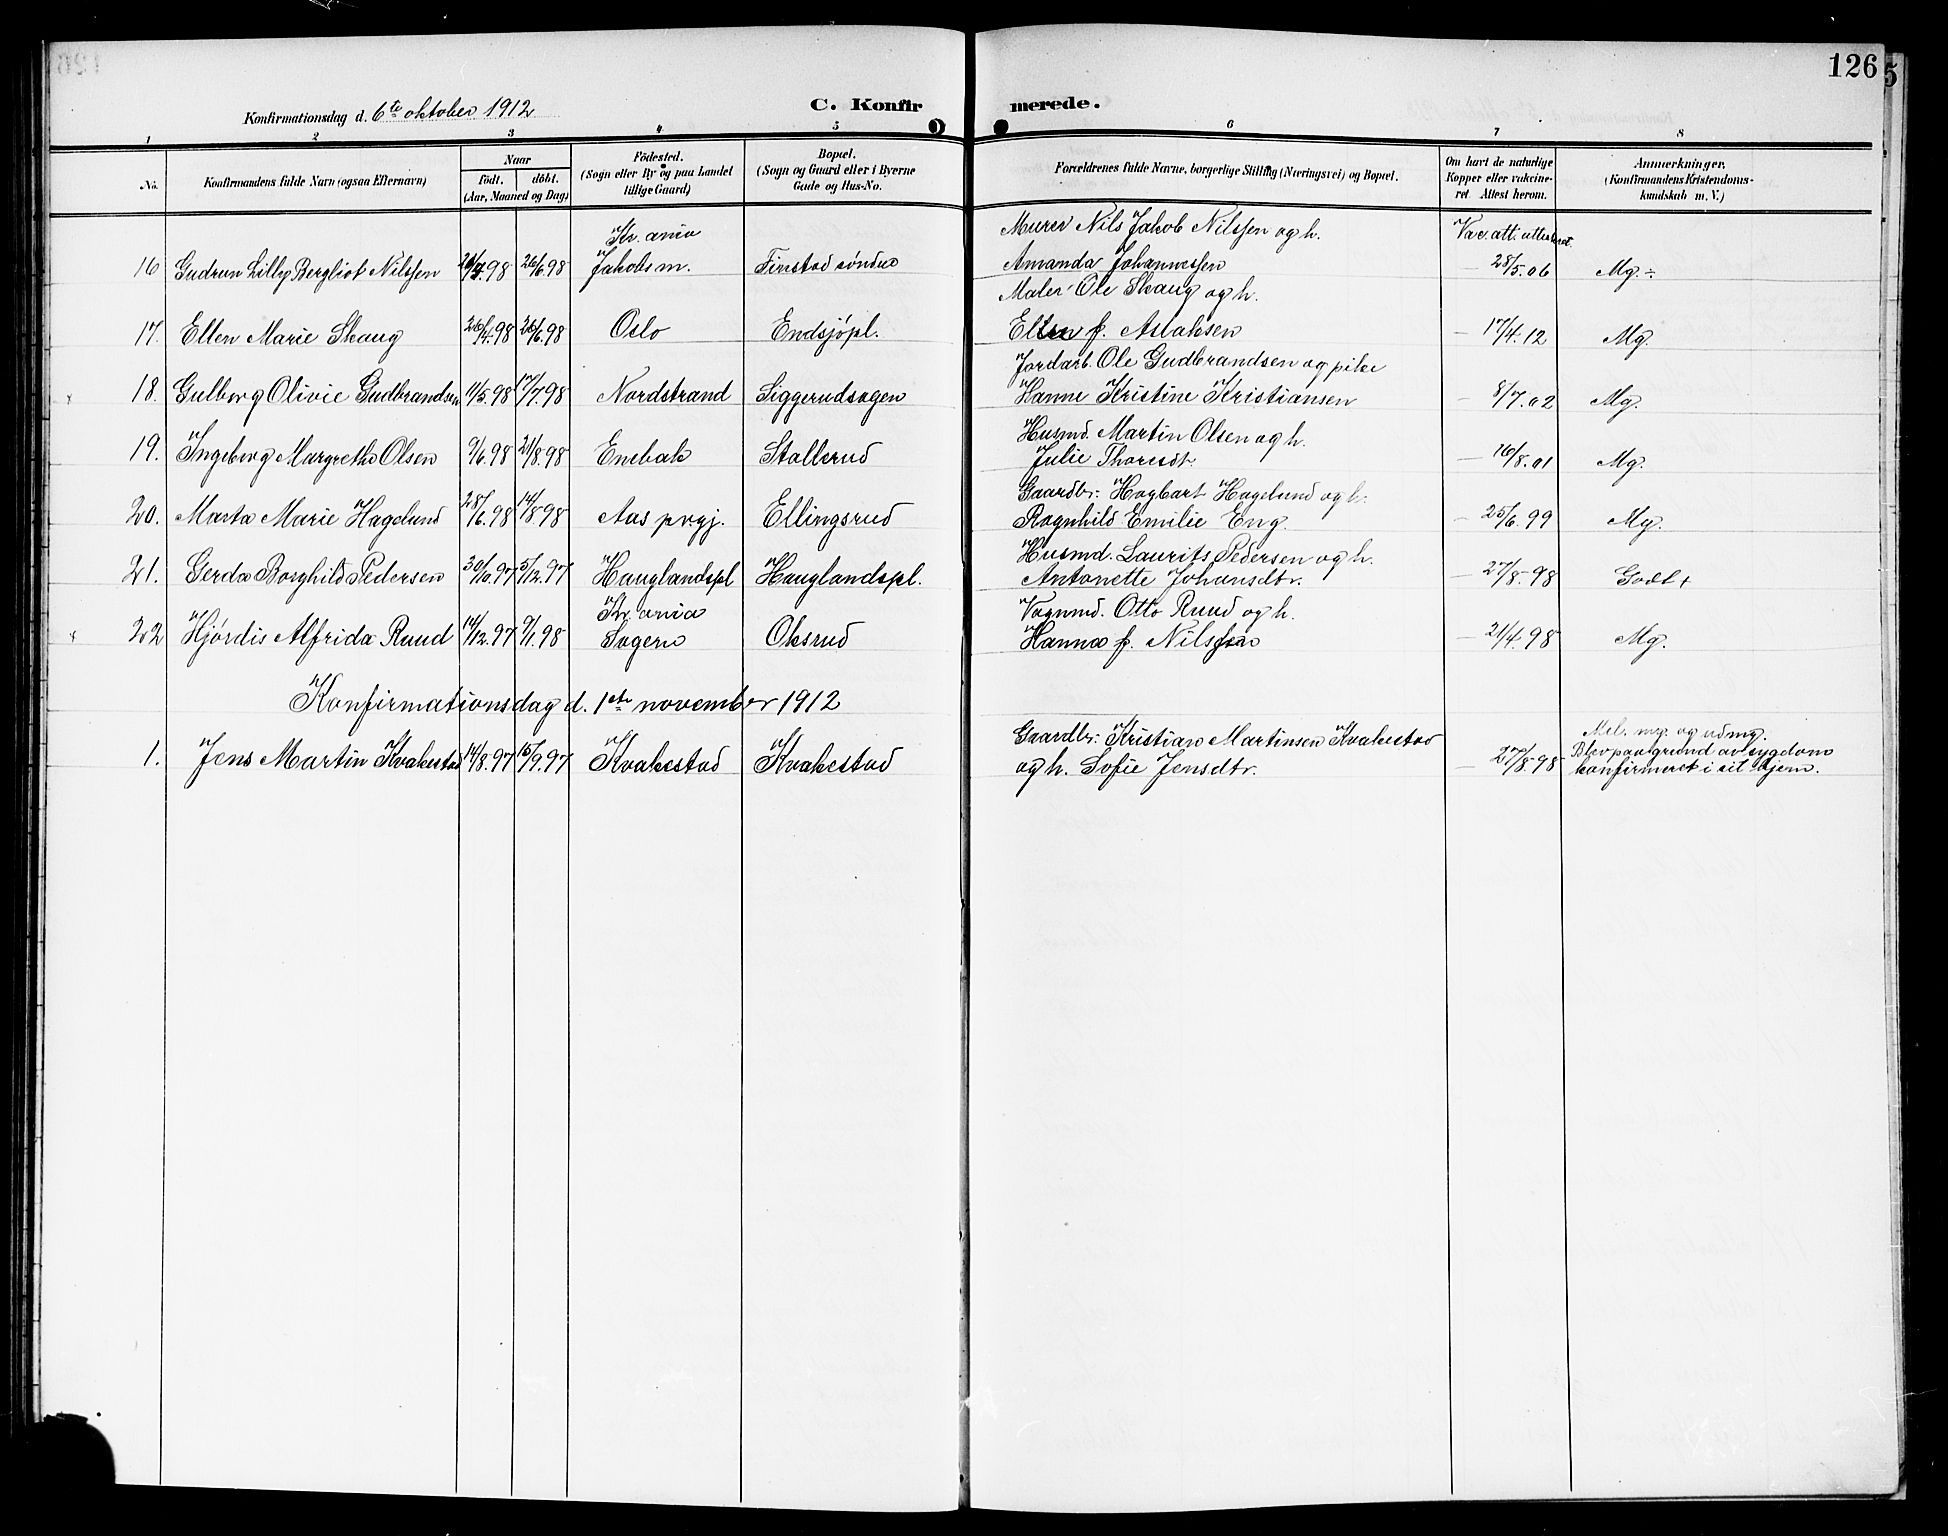 126
Konfirmationsdag d. 6te oktober 1912
C. Konfirmerede.
1 2 3 4 5 6 7 8
No. Konfirmandens fulde Navn (ogsaa Efternavn)
Naar
födt. döbt.
(Aar, Maaned og Dag)
Födested.
(Sogn eller By og paa Landet
tillige Gaard)
Bopæl.
(Sogn og Gaard eller i Byerne
Gade og Hus-No.
Forældrenes fulde Navne, borgerlige Stilling (Næringsvei) og Bopæl.
Om havt de naturlige
Kopper eller vakcine-
ret Attest herom.
Anmærkninger.
(Konfirmandens Kristendoms-
kundskab m. V.)
Kr.ania Murer Nils Jakob Nilssen og h. Vac. att. attesteret
16 Gudrun Lilly Bergliot Nilssen 98 26/6.98 Jakobs m. Finstad söndre Amanda Johannessen - 28/5.06 Mg. ÷
Maler Ole Skaug og h.
17. Ellen Marie Skaug 26/4.98 26/6.98 Oslo Endsjöpl. Ellen f. Aslaksen - 17/4.12 Mg.
Jordarb. Ole Gudbrandsen og pike
x 18. Gulborg Olivie Gudbrandsen 11/5.98 17/7.98 Nordstrand Siggerudsagen Hanne Kristine Kristiansen - 8/7.02 Mg.
Husmd. Martin Olsen og h.
19. Ingeborg Margrethe Olsen 9/6.98 21/8.98 Enebak Stallerud Julie Thorsdt. - 16/8.01 Mg.
Gaardbr. Hagbart Hagelund og h.
20. Marta Marie Hagelund 28/6.98 14/8.98 Aas prgj. Ellingsrud Ragnhild Emilie Eng. - 25/6.99 Mg.
Husmd. Laurits Pedersen og h.
21. Gerda Borghild Pedersen 30/10.97 5/12.97 Hauglandspl Hauglandspl. Antonette Johansdtr. - 27/8.98 Godt +
Kr.ania Vognmd. Otto Ruud og h.
x 22 Hjørdis Alfrida Ruud 14/12.97 9/1.98 Sagene Oksrud Hanna f. Nilssen - 21/4.98 Mg.
Konfirmationsdag d. 1ste november 1912
Gaardbr. Kristian Martinsen Kvakestad Mel. mg. og udmg.
1. Jens Martin Kvakestad 14/8.97 15/9.97 Kvakestad Kvakestad og h. Sofie Jensdtr. - 27/8.98 Blev paa grund av sygdom
konfirmeret i sit hjem.